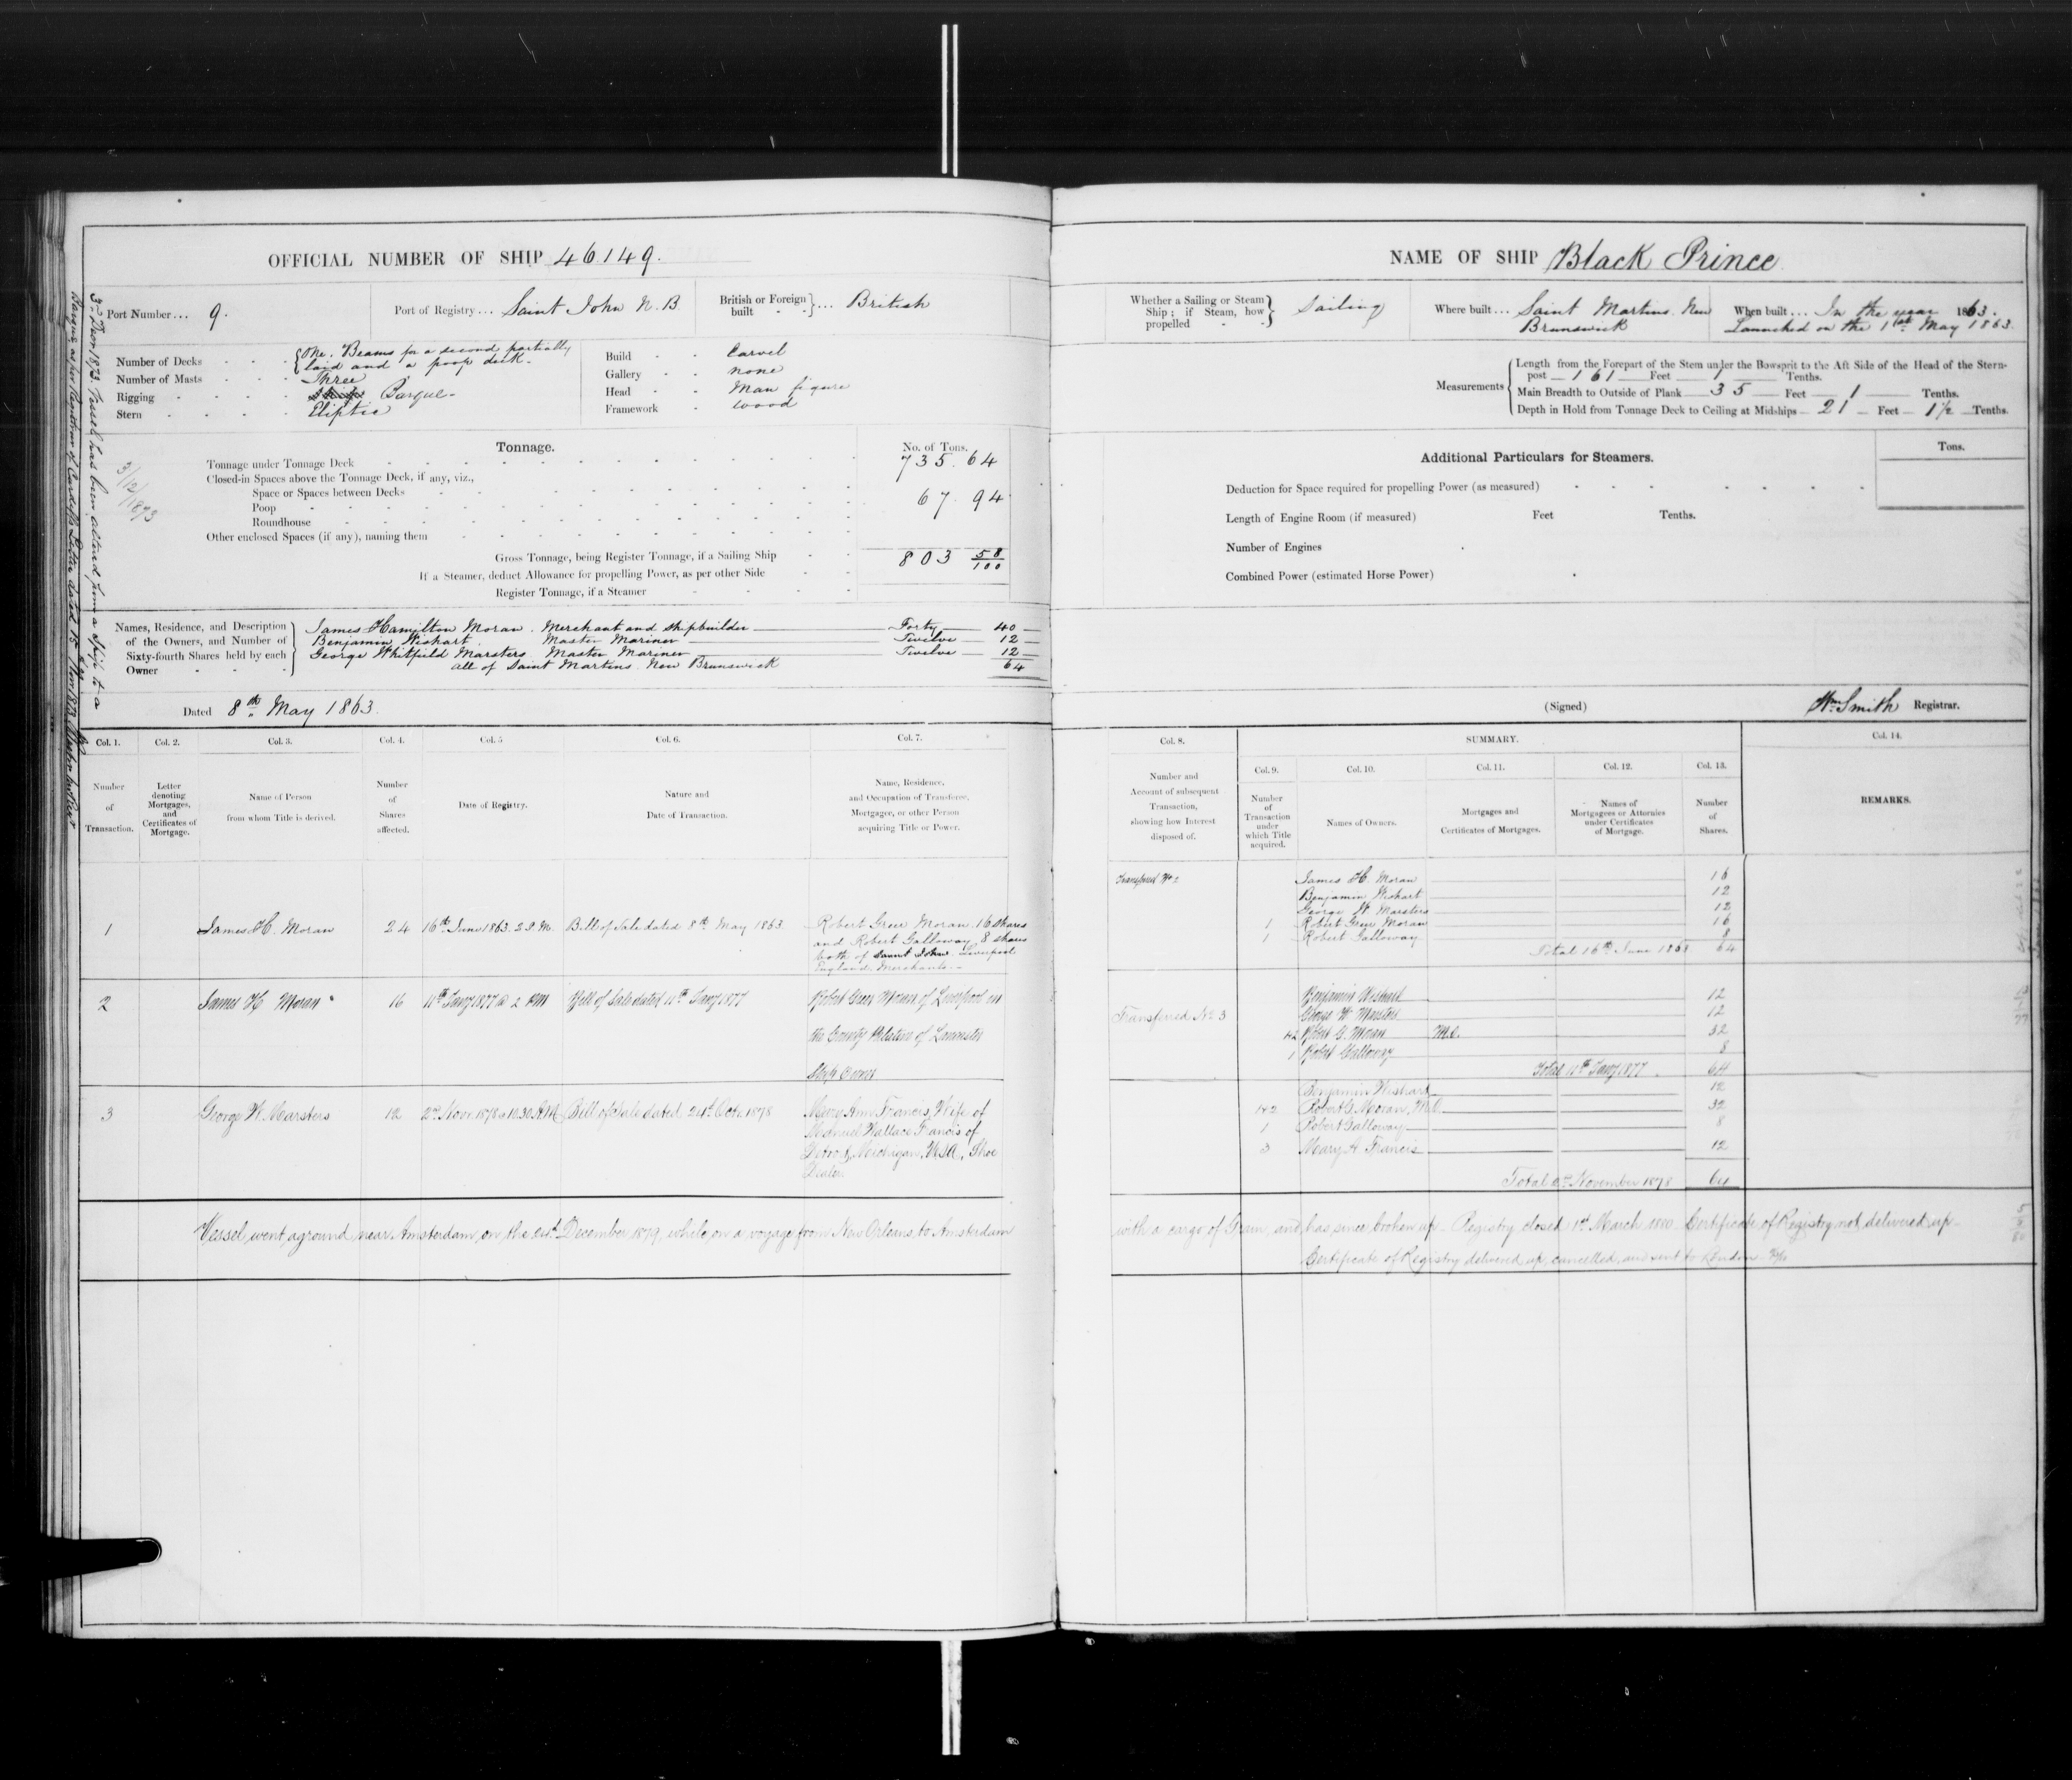 OFFICIAL NUMBER OF SHIP 46149.
Port Number... 9.
Port of Registry... Saint John N.B.
British or Foreign built - - } ... British
Number of Decks - - { One. Beams for a second partially
laid and a poop deck.
Number of Masts - - - Three
Rigging - - - - Barque.
Stern - - - - Eliptic
Build - - Carvel
Gallery - - none
Head - - Man figure
Framework - wood
Tonnage.
No. of Tons.
Tonnage under Tonnage Deck 735.64
Closed-in Spaces above the Tonnage Deck, if any, viz.,
Space or Spaces between Decks
Poop 67.94
Roundhouse
Other enclosed Spaces (if any), naming them
Gross Tonnage, being Register Tonnage, if a Sailing Ship 803 58/100
If a Steamer, deduct Allowance for propelling Power, as per other Side
Register Tonnage, if a Steamer
3/12/1873
3rd Decr 1873. Vessel has been altered from a Ship to a
Barque as per Registrar of Cardiff's Letter dated 15th Nov 1873
Names, Residence, and Description
of the Owners, and Number of
Sixty-fourth Shares held by each
Owner
James Hamilton Moran. Merchant and shipbuilder Forty 40
Benjamin Wishart. Master Mariner Twelve 12
George Whitfield Marsters Master Mariner Twelve 12
all of Saint Martins New Brunswick 64
Dated 8th May 1863.
Col. 1. Col. 2. Col. 3. Col. 4. Col. 5 Col. 6. Col. 7.
Number of Transaction.
Letter denoting Mortgages, and Certificates of Mortgage.
Name of Person from whom Title is derived.
Number of Shares affected.
Date of Registry.
Nature and Date of Transaction.
Name, Residence, and Occupation of Transferee, Mortgagee, or other Person acquiring Title or Power.
1 James H. Moran 24 16th June 1863. 2 P.M. Bill of Sale dated 8th May 1863. Robert Greer Moran 16 shares
and Robert Galloway 8 shares
both of Saint John Liverpool
England Merchants.
2 James H Moran 16 11th Jany 1877 @ 2 PM Bill of Sale dated 11th Jany 1877 Robert Greer Moran of Liverpool in
the County Palatine of Lancaster
Ship Owner
3 George W. Marsters 12 2nd Novr. 1878 @ 10.30 A.M. Bill of Sale dated 24th Octr. 1878 Mary Ann Francis, Wife of
Manuel Wallace Francis of
Detroit, Michigan, U.S.A., Shoe
Dealer.
Vessel went aground near Amsterdam, on the December 1879, while on a voyage from New Orleans, to Amsterdam
NAME OF SHIP Black Prince
Whether a Sailing or Steam Ship; if Steam, how propelled - - } Sailing
Where built... Saint Martins New
Brunswick
When built... In the year 1863.
Launched on the 1st May 1863.
Measurements
Length from the Forepart of the Stem under the Bowsprit to the Aft Side of the Head of the Stern-
post 161 Feet 1 Tenths.
Main Breadth to Outside of Plank 35 Feet 1 Tenths.
Depth in Hold from Tonnage Deck to Ceiling at Midships 21 Feet 1½ Tenths.
Additional Particulars for Steamers.
Tons.
Deduction for Space required for propelling Power (as measured)
Length of Engine Room (if measured) Feet Tenths.
Number of Engines
Combined Power (estimated Horse Power)
(Signed) Wm Smith Registrar.
Col. 8. SUMMARY. Col. 14.
Col. 9. Col. 10. Col. 11. Col. 12. Col. 13.
Number and Account of subsequent Transaction, showing how Interest disposed of.
Number of Transaction under which Title acquired.
Names of Owners.
Mortgages and Certificates of Mortgages.
Names of Mortgagees or Attornies under Certificates of Mortgage.
Number of Shares.
REMARKS.
Transferred No 2 James H. Moran 16
Benjamin Wishart 12
George W. Marsters 12
1 Robert Greer Moran 16
1 Robert Galloway 8
Total 16th June 1863 64
Benjamin Wishart 12
Transferred No 3 George W Marsters 12
1&2 Robert G. Moran M.O. 32
1 Robert Galloway 8
Total 11th Jany 1877 64
Benjamin Wishart 12
1&2 Robert G. Moran, M.O. 32
1 Robert Galloway 8
3 Mary A. Francis 12
Total 2nd November 1878 64
with a cargo of Grain, and has since broken up. Registry closed 1st March 1880. Certificate of Registry not delivered up.
Certificate of Registry delivered up, cancelled, and sent to London